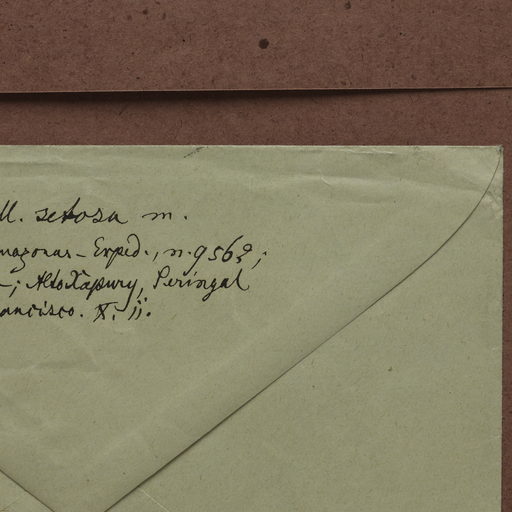 M. setosa m.
mazonas-Exped., n. 9562;
; Alto Xapury, Peringal
ancisco. X. ii.